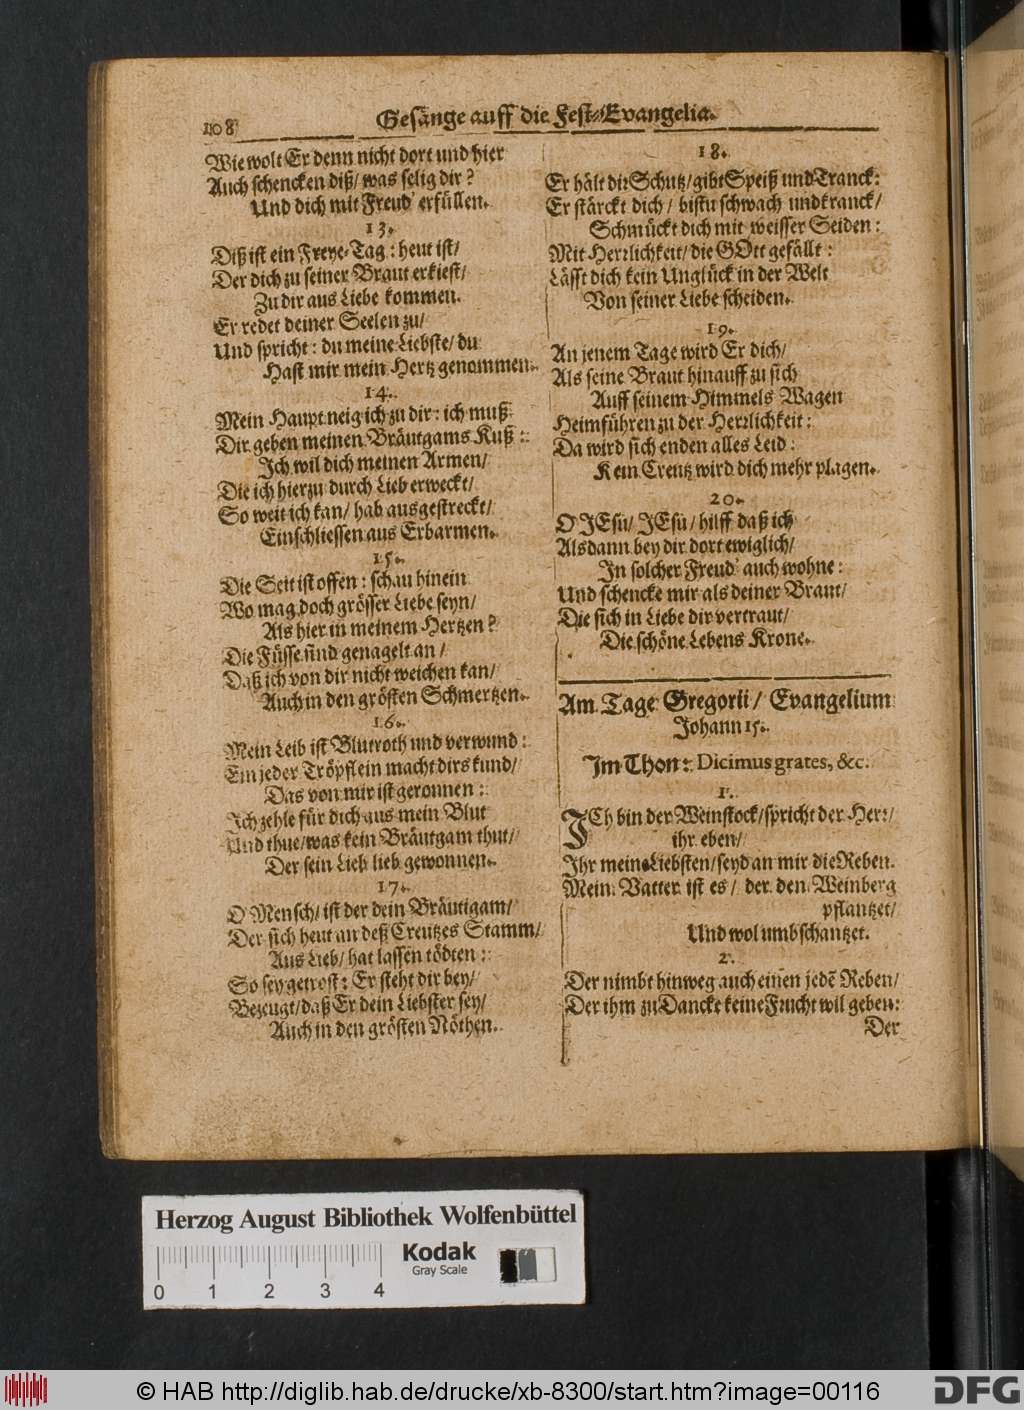 108 Gesänge auff die Fest-Evangelia.
Wie wolt Er denn nicht dort und hier
Auch schencken diß/ was selig dir?
Und dich mit Freud' erfüllen.
13.
Diß ist ein Freye-Tag: heut ist/
Der dich zu seiner Braut erkiest/
Zu dir aus Liebe kommen.
Er redet deiner Seelen zu/
Und spricht: du meine Liebste/ du
Hast mir mein Hertz genommen.
14.
Mein Haupt neig ich zu dir: ich muß
Dir geben meinen Bräutgams Kuß:
Ich wil dich meinen Armen/
Die ich hierzu durch Lieb erweckt/
So weit ich kan/ hab ausgestreckt/
Einschliessen aus Erbarmen.
15.
Die Seit ist offen: schau hinein
Wo mag doch grösser Liebe seyn/
Als hier in meinem Hertzen?
Die Füsse sind genagelt an/
Daß ich von dir nicht weichen kan/
Auch in den grösten Schmertzen.
16.
Mein Leib ist Blutroth und verwund:
Ein jeder Tröpflein macht dirs kund/
Das von mir ist geronnen:
Ich zehle für dich aus mein Blut
Und thue/ was kein Bräutgam thut/
Der sein Lieb lieb gewonnen.
17.
O Mensch/ ist der dein Bräutigam/
Der sich heut an deß Creutzes Stamm/
Aus Lieb/ hat lassen tödten:
So sey getrost: Er steht dir bey/
Bezeugt/ daß Er dein Liebster sey/
Auch in den grösten Nöthen.
18.
Er hält dir Schutz/ gibt Speiß und Tranck:
Er stärckt dich/ bistu schwach und kranck/
Schmückt dich mit weisser Seiden:
Mit Herrlichkeit/ die GOtt gefällt:
Lässt dich kein Unglück in der Welt
Von seiner Liebe scheiden.
19.
An jenem Tage wird Er dich/
Als seine Braut hinauff zu sich
Auff seinem Himmels Wagen
Heimführen zu der Herrlichkeit:
Da wird sich enden alles Leid:
Kein Creutz wird dich mehr plagen.
20.
O JEsu/ JEsu/ hilff daß ich
Alsdann bey dir dort ewiglich/
In solcher Freud' auch wohne:
Und schencke mir als deiner Braut/
Die sich in Liebe dir vertraut/
Die schöne Lebens Krone.
Am Tage Gregorii/ Evangelium
Johann 15.
Im Thon: Dicimus grates, &c.
1.
ICh bin der Weinstock/ spricht der Herr/
ihr eben/
Ihr meine Liebsten/ seyd an mir die Reben.
Mein Vatter ist es/ der den Weinberg
pflantzet/
Und wol umbschantzet.
2.
Der nimbt hinweg auch einen jedē Reben/
Der ihm zu Dancke keine Frucht wil geben:
Der
Herzog August Bibliothek Wolfenbüttel
Kodak
Gray Scale
0 1 2 3 4
© HAB http://diglib.hab.de/drucke/xb-8300/start.htm?image=00116
DFG